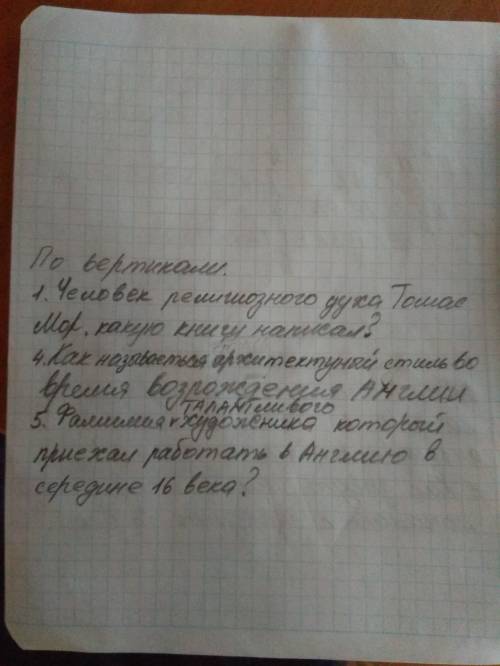 По вертикали.
1. Человек религиозного духа Томас
Мор, какую книгу написал?
4. Как называеться архитектуной стиль во
время возрождения Англии
5. Фалиалия талантливого художника который
приехал работать в Англию в
середине 16 века?